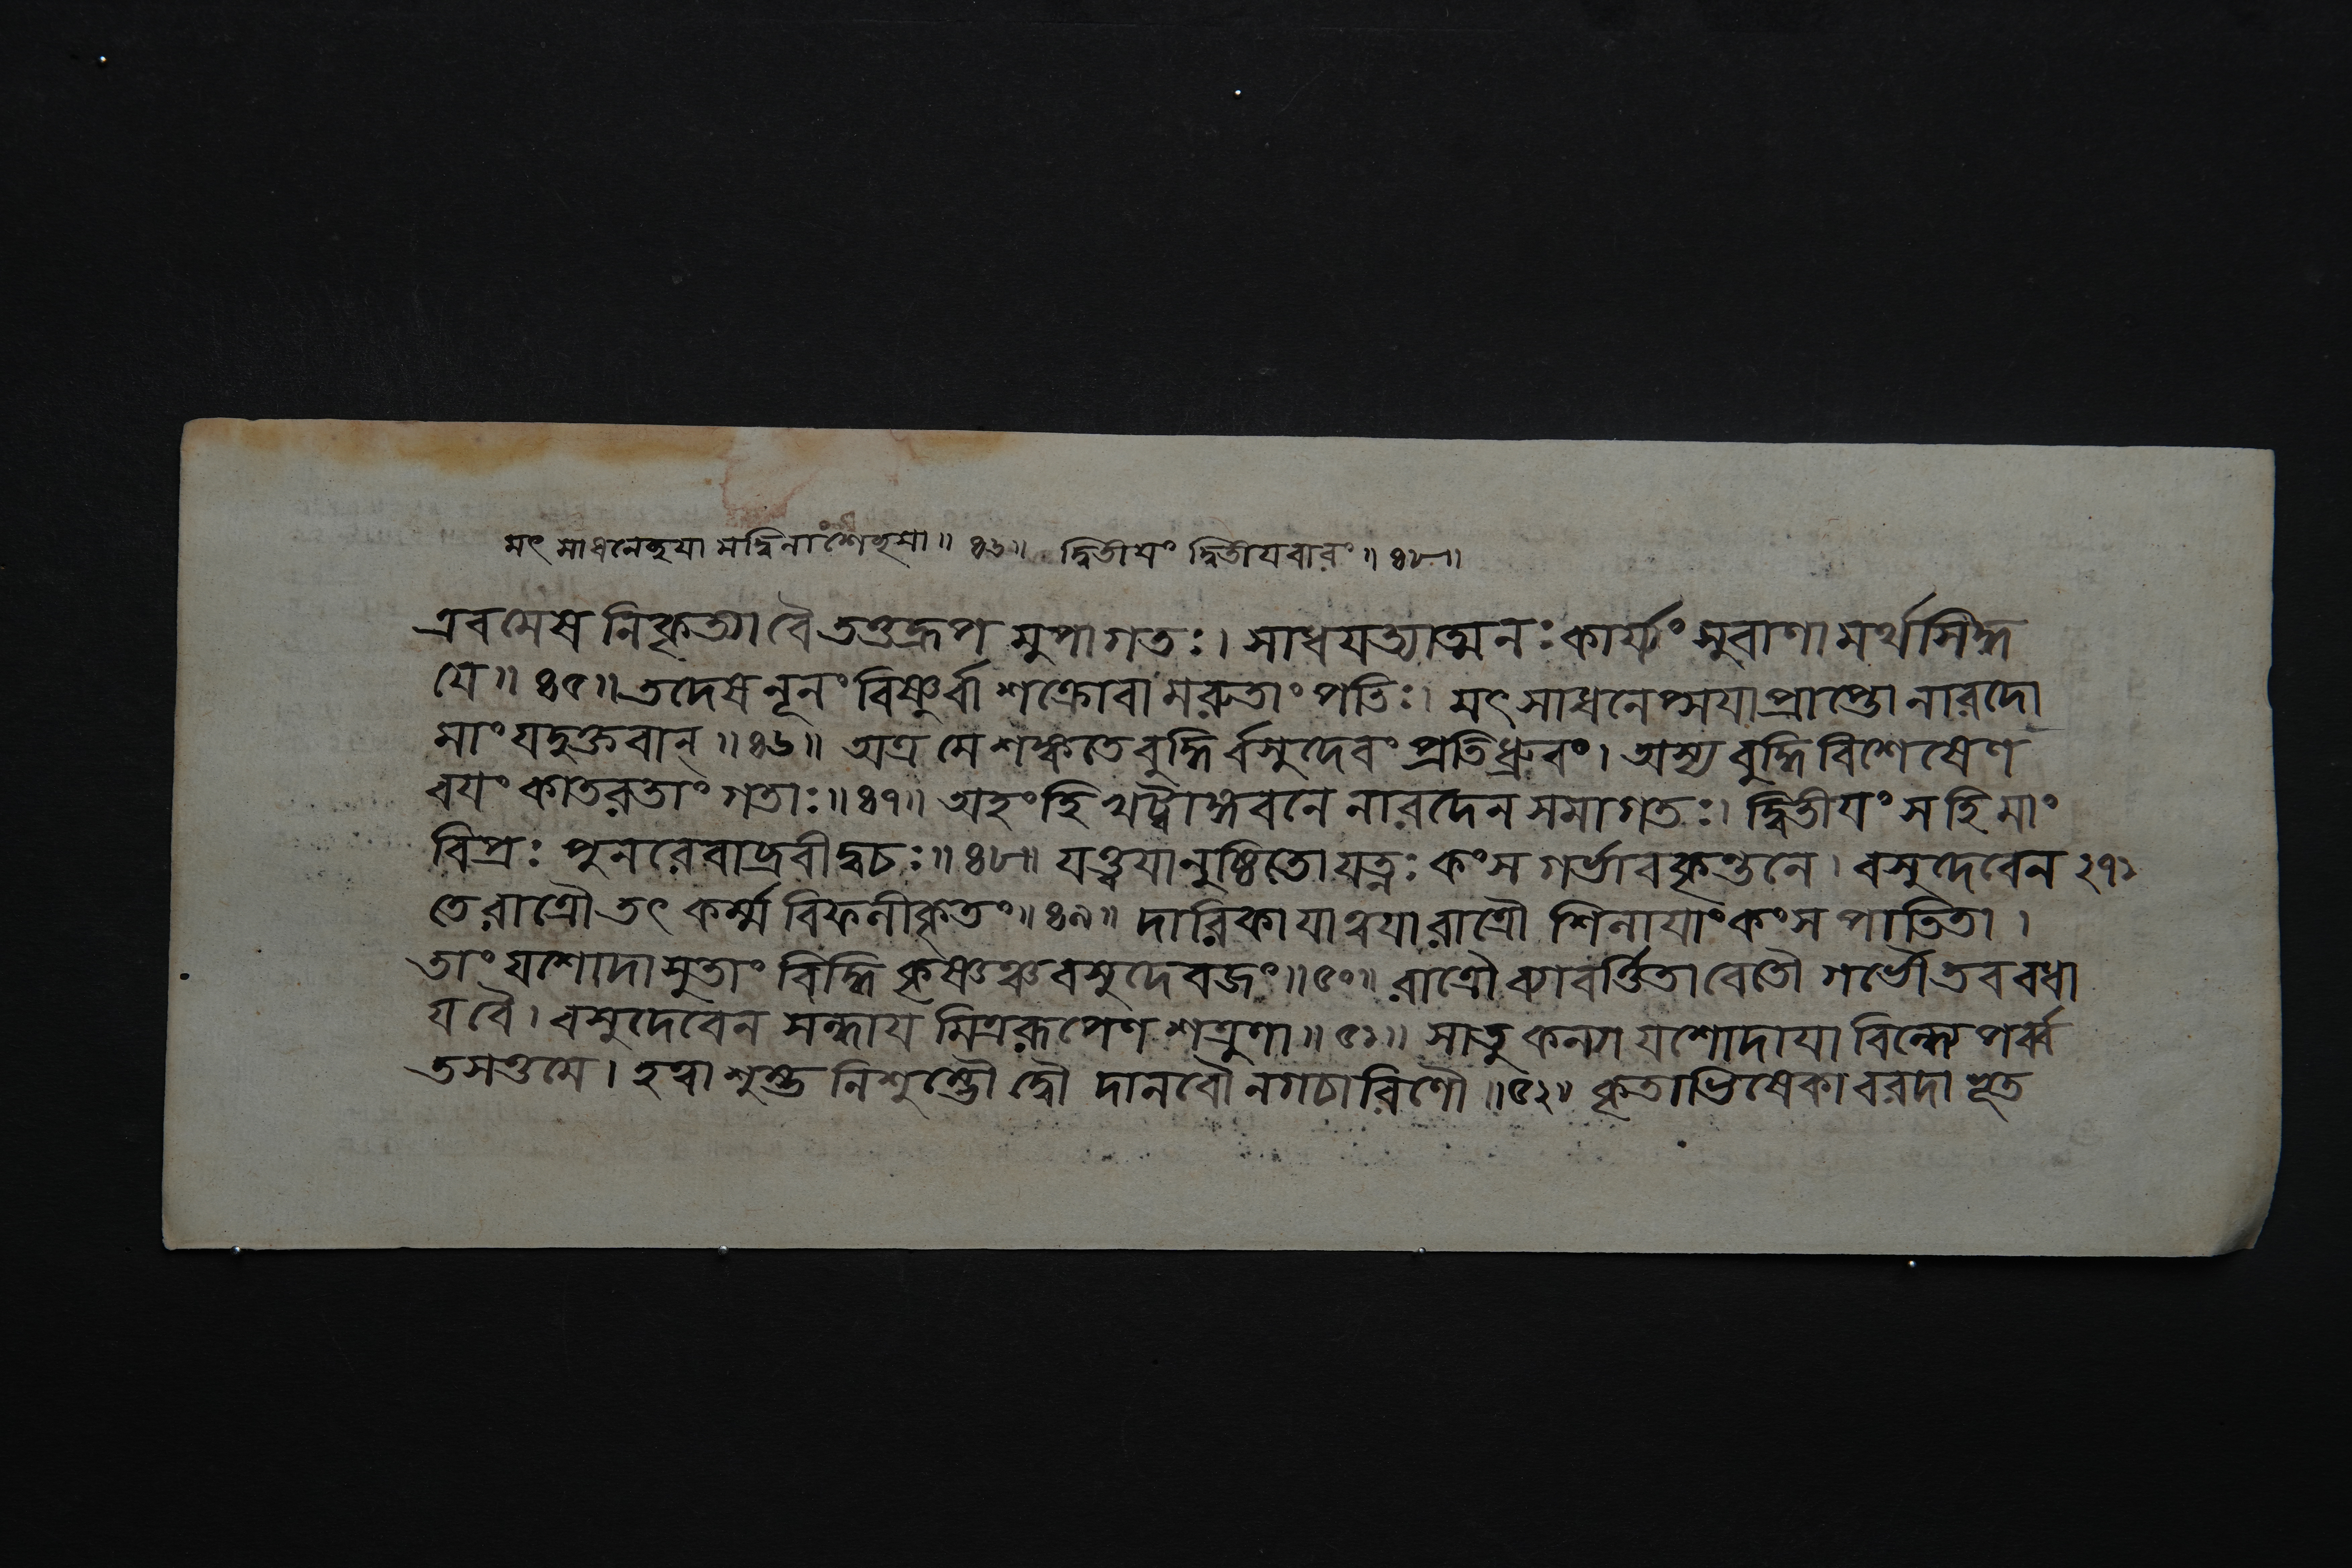 মৎ সাধনেচ্ছয়া মদ্বিনাশেচ্ছয়া॥ ৪৬॥ দ্বিতীয়ং দ্বিতীয়বারং॥ ৪৮॥
এবমেষ নিকৃত্যা বৈ তত্তদ্রূপ মুপাগতঃ। সাধযত্যাত্মনঃ কার্য্যং সুরাণামর্থসিদ্ধ
যে॥ ৪৫॥ তদেষ নূনং বিষ্ণুর্বা শক্রোবা মরুতাং পতিঃ। মৎসাধনেপ্সযা প্রাপ্তো নারদো
মাং যদুক্তবান্॥ ৪৬॥ অত্র মে শঙ্কতে বুদ্ধির্বসুদেবং প্রতি ধ্রুবং। অস্য বুদ্ধিবিশেষেণ
বযং কাতরতাং গতাঃ॥ ৪৭॥ অহং হি খট্বাঙ্গবনে নারদেন সমাগতঃ। দ্বিতীযং স হি মাং
বিপ্রঃ পুনরেবাব্রবীদ্বচঃ॥ ৪৮॥ যত্ত্বযানুষ্ঠিতো যত্নঃ কংস গর্ভাবকৃন্তনে। বসুদেবেন ২৭১
তে রাত্রৌ তৎ কর্ম্ম বিফলীকৃতং॥ ৪৯॥ দারিকা যা ত্বযা রাত্রৌ শিলাযাং কংস পাতিতা।
তাং যশোদাসুতাং বিদ্ধি কৃষ্ণঞ্চ বসুদেবজং॥ ৫০॥ রাত্রৌ ব্যাবর্ত্তিতাবেতৌ গর্ভৌ তব বধা
য বৈ। বসুদেবেন সন্ধায মিত্ররূপেণ শত্রুণা॥ ৫১॥ সা তু কন্যা যশোদাযা বিন্ধ্যে পর্ব্ব
তসত্তমে। হত্বা শুম্ভ নিশুম্ভৌ দ্বৌ দানবৌ নগচারিণৌ॥ ৫২॥ কৃতাভিষেকা বরদা ভূত